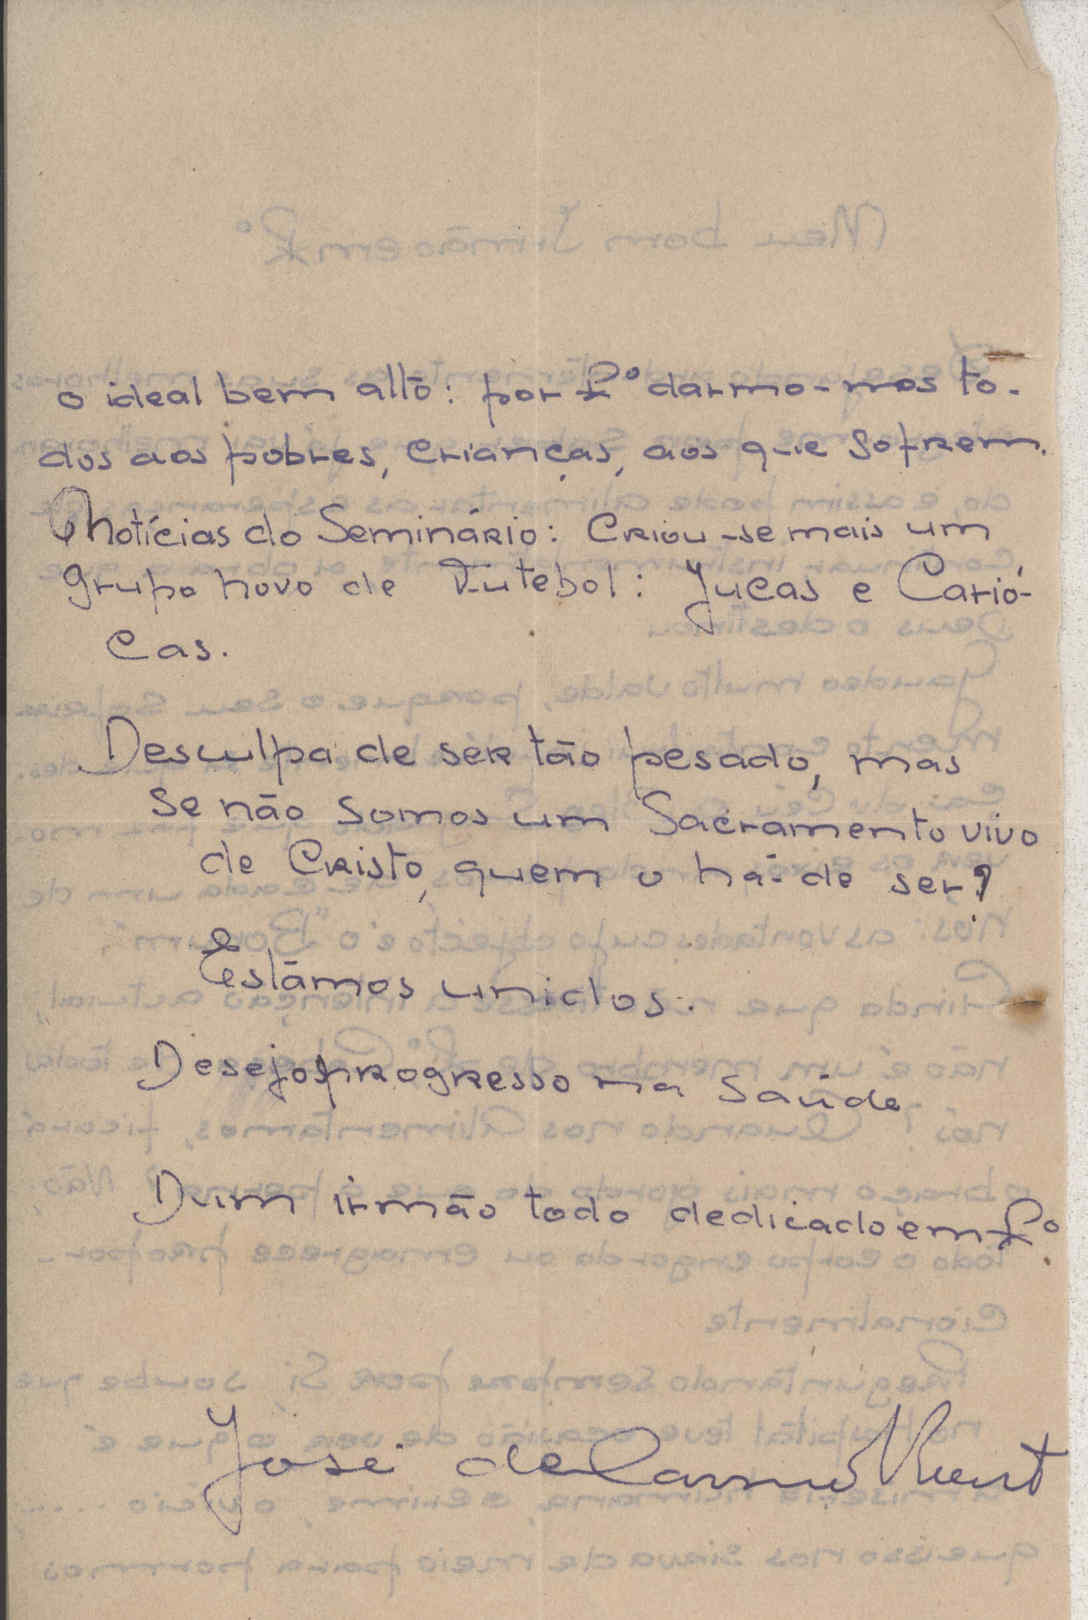 o ideal bem alto: por X.º darmo-nos to-
dos aos pobres, crianças, aos que sofrem.
Notícias do Seminário: Criou-se mais um
grupo novo de Futebol: Jucas e Carió-
cas.
Desculpa de ser tão pesado, mas
se não somos um Sacramento vivo
de Cristo, quem o há-de ser?
Estamos unidos.
Desejo progresso na saúde
Dum irmão todo dedicado em X.º
José de